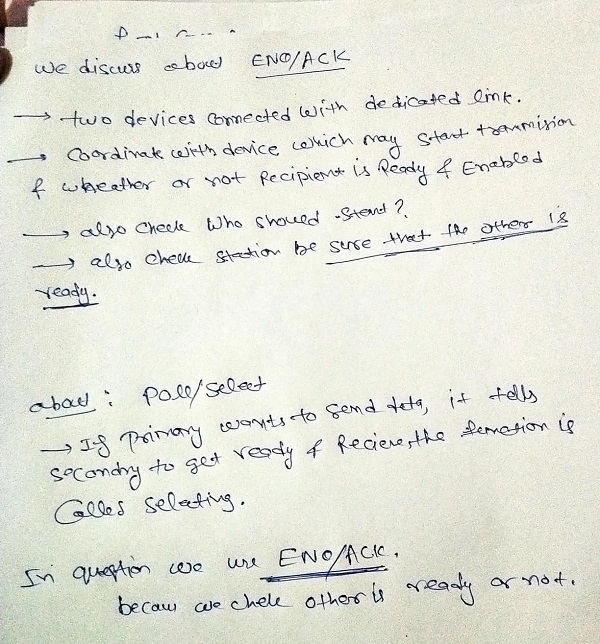 We discuss about ENQ/ACK
→ two devices connected with dedicated link.
→ Coordinate with device which may start tranmision
& wheather or not Recipient is Ready & Enabled
→ also check Who should start?
→ also check station be sure that the other is
ready.
about : Poll/Select
→ If primary wants to send data, it tells
secondry to get ready & Recieve, the function is
Called selecting.
In question we use ENQ/ACK.
becaus we chek other is ready or not.